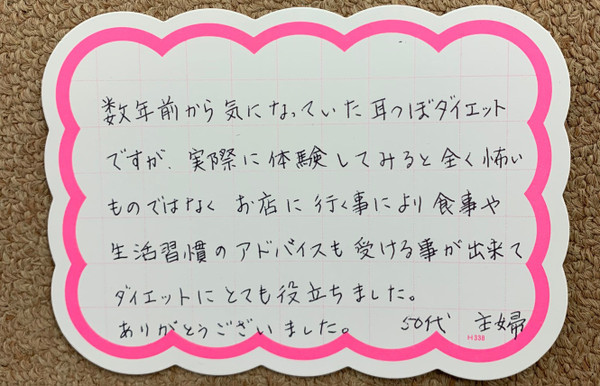 数年前から気になっていた耳つぼダイエット
ですが、実際に体験してみると全く怖い
ものではなく お店に行く事により食事や
生活習慣のアドバイスも受ける事が出来て
ダイエットにとても役立ちました。
ありがとうございました。 50代 主婦
H338